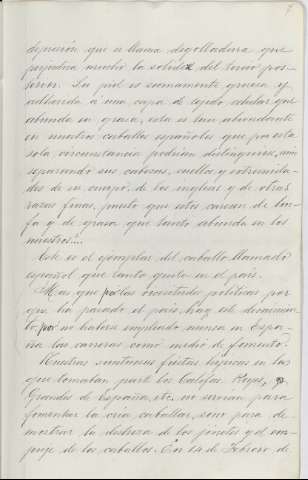 7
depresión que se llama degolladura que
perjudica mucho la solidez del tercio pos-
terior. La piel es sumamente gruesa y
adherida à una capa de tejido celular que
abunda en grasa, esta es tan abundante
en nuestros caballos españoles que por esta
sola circunstancia podrian distinguirse, aun
separando sus cabezas, cuellos y extremida-
des de su cuerpo, de los ingleses y de otras
razas finas, puesto que estos carecen de lin-
fa y de grasa que tanto abunda en los
nuestros....
Este es el ejemplar del caballo llamado
español que tanto gusta en el pais.
Mas que por las vicisitudes políticas por
que ha pasado el país, hay este decaimien-
to, por no haberse empleado nunca en Espa-
ña las carreras como medio de fomento.
Nuestras suntuosas fiestas hípicas en las
que tomaban parte los Califas, Reyes,
Grandes de España, etc. no servian para
fomentar la cria caballar, sino para de-
mostrar la destreza de los jinetes y el em-
puje de los caballos. En 14 de Febrero de